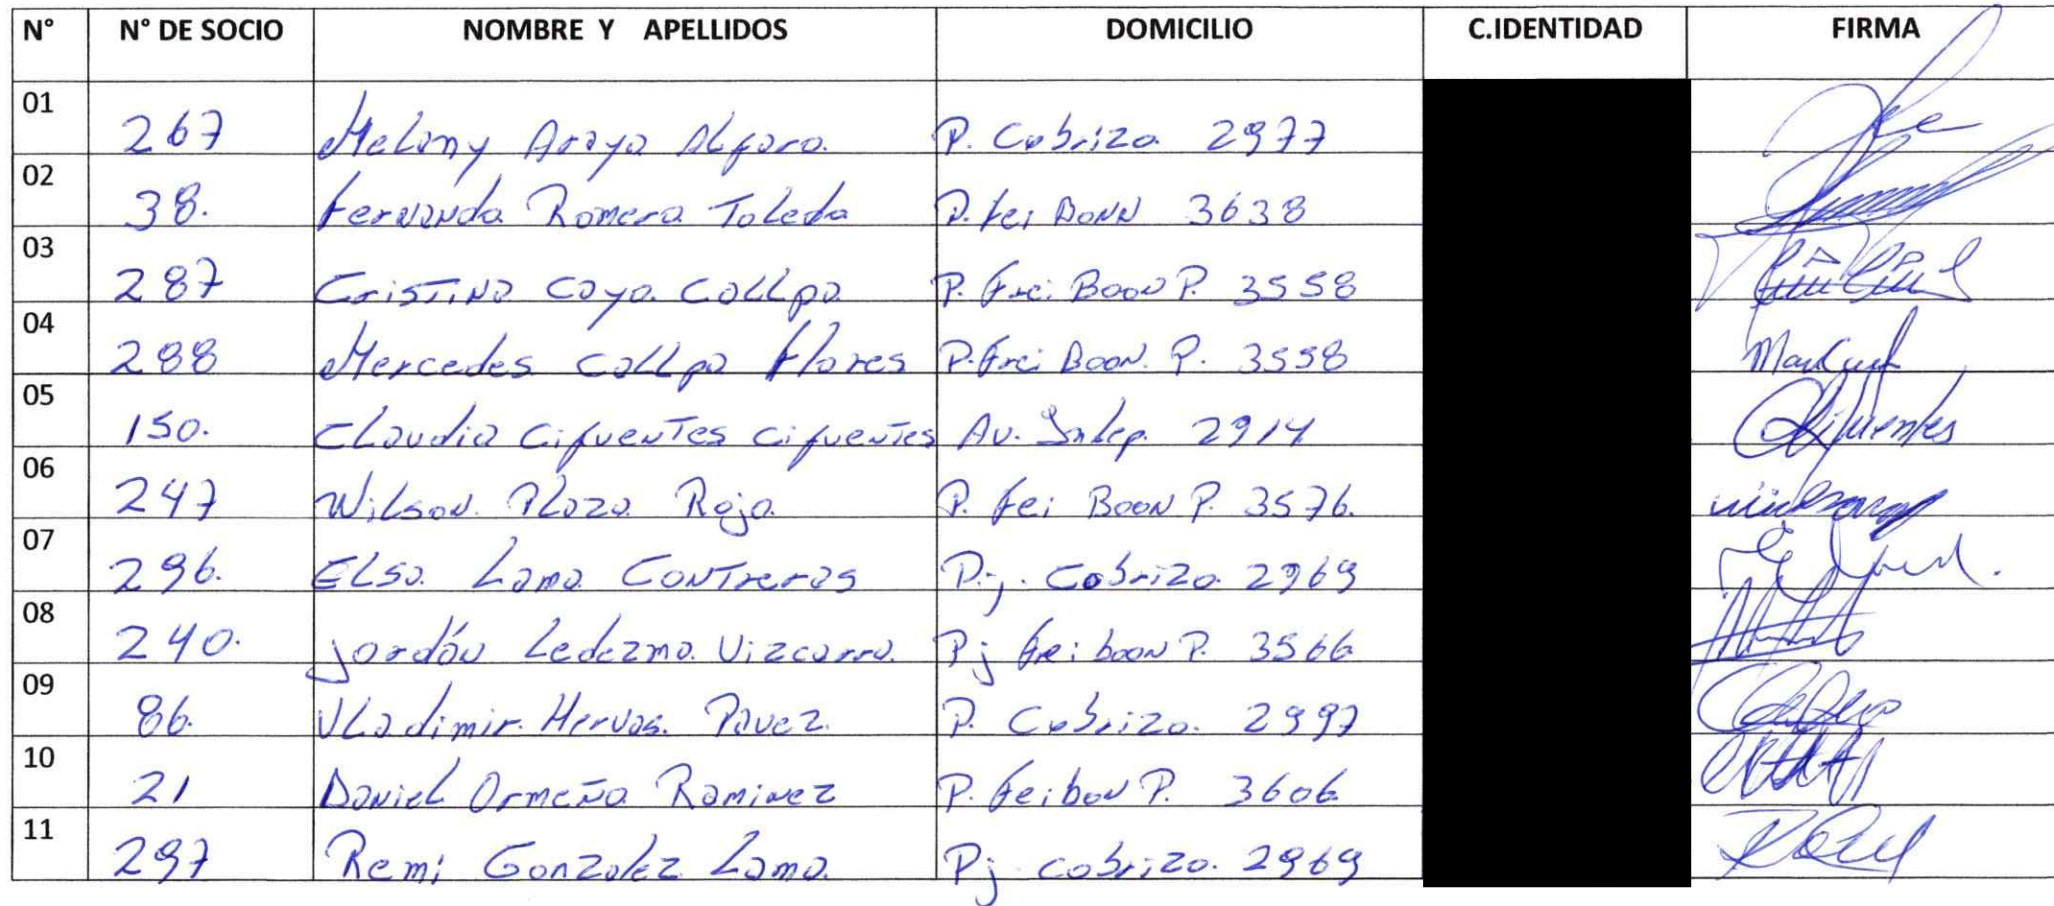 N° N° DE SOCIO NOMBRE Y APELLIDOS DOMICILIO C.IDENTIDAD FIRMA
01 267 Melany Araya Alfaro. P. Cobriza. 2977
02 38. Fernanda Romero Toledo P. fei BONN 3638
03 287 Cristina Caya Collpa P. Frei Boon P. 3558
04 288 Mercedes Collpa Flores P. Frei Boon. P. 3558
05 150. Claudia Cifuentes Cifuentes Av. Indep. 2914 Cifuentes
06 247 Wilson. Plaza Rojo P. fei Boon P. 3576.
07 296. Elsa. Lama Contreras P.j. Cobriza 2969
08 240. Jordán Ledezma Vizcarra. Pj frei boon P. 3566
09 86. Vladimir. Hervas. Pavez. P. Cobriza. 2997
10 21 Daniel Ormeño Raminez P. feibon P. 3606
11 297 Remi Gonzalez Lama. Pj. cobriza. 2969